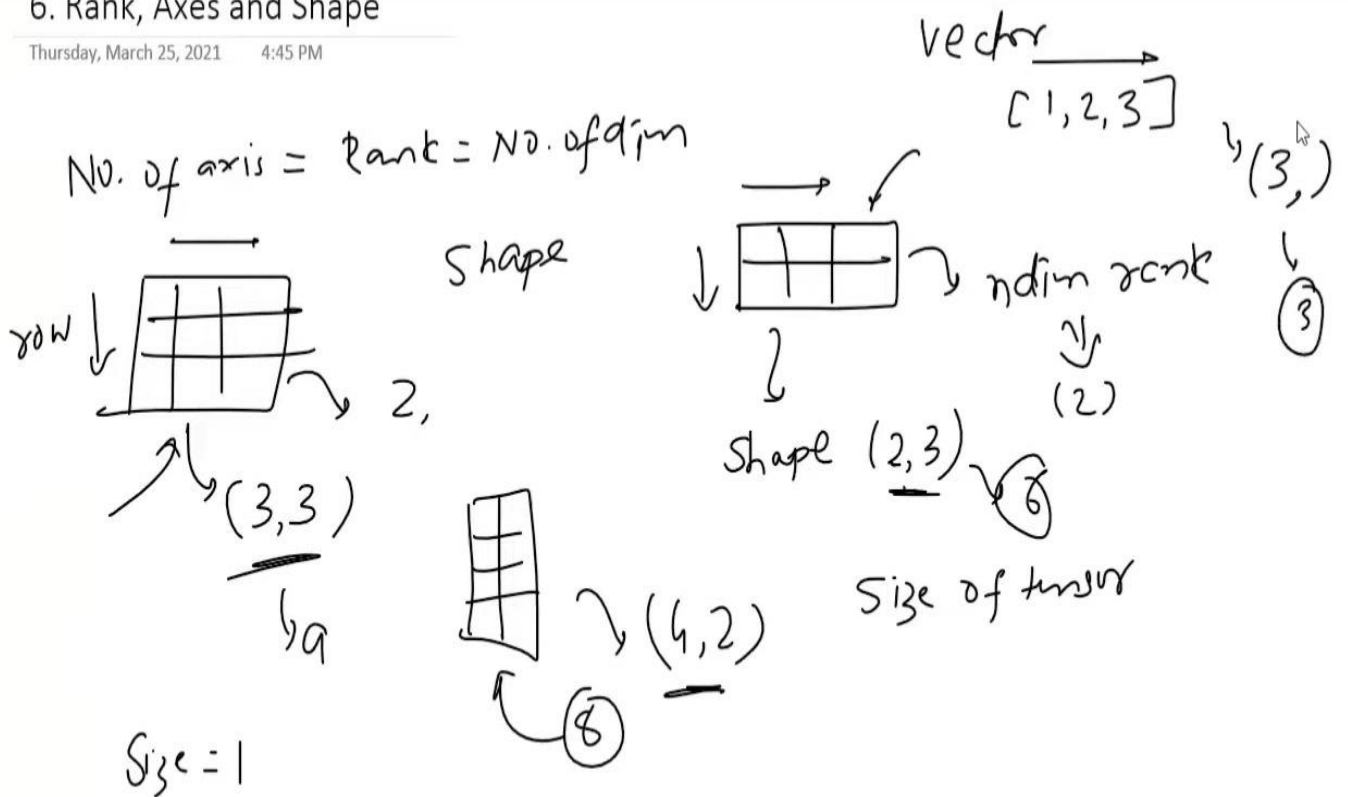 6. Rank, Axes and Shape
Thursday, March 25, 2021 4:45 PM
vector
[1,2,3]
(3,)
3
No. of axis = Rank = No. of dim
Shape
row
2,
(3,3)
9
ndim rank
(2)
Shape (2,3)
6
(4,2)
8
Size of tensor
Size = 1